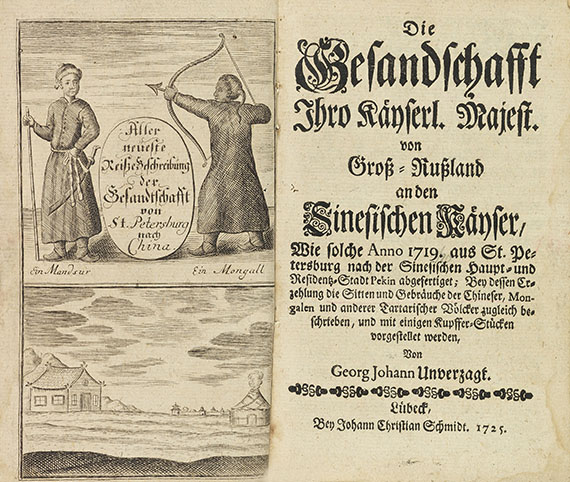 Aller
neueste
Reiße Beschreibung
der
Gesandschafft
von
St. Petersburg
nach
China
Ein Mandsur
Ein Mongall
Die
Gesandschafft
Ihro Käyserl. Majest.
von
Groß-Rußland
an den
Sinesischen Käyser,
Wie solche Anno 1719. aus St. Pe-
tersburg nach der Sinesischen Haupt- und
Residentz-Stadt Pekin abgefertiget; Bey dessen Er-
zehlung die Sitten und Gebräuche der Chineser, Mon-
galen und anderer Tartarischer Völcker zugleich be-
schrieben, und mit einigen Kupffer-Stücken
vorgestellet werden,
Von
Georg Johann Unverzagt.
Lübeck,
Bey Johann Christian Schmidt. 1725.